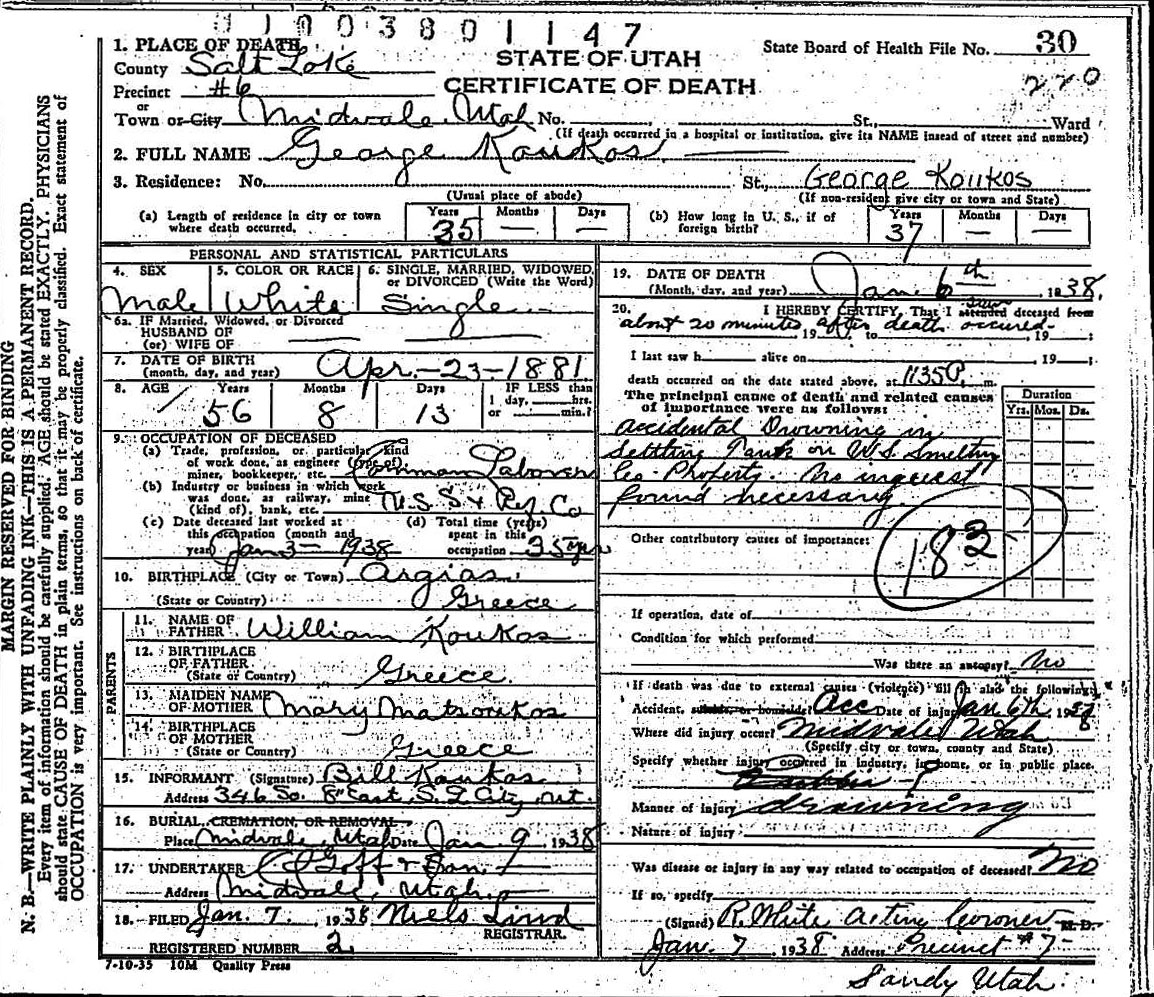 0 1 0 0 3 8 0 1 1 4 7
State Board of Health File No. 30
220
STATE OF UTAH
CERTIFICATE OF DEATH
1. PLACE OF DEATH
County Salt Loke
Precinct #6
or
Town or City Midvale, Utah No. St., Ward
(If death occurred in a hospital or institution, give its NAME insead of street and number)
2. FULL NAME George Koukos
3. Residence: No. St., George Koukos
(Usual place of abode) (If non-resident give city or town and State)
(a) Length of residence in city or town where death occurred. Years 35 Months — Days —
(b) How long in U. S., if of foreign birth? Years 37 Months — Days —
PERSONAL AND STATISTICAL PARTICULARS
4. SEX Male
5. COLOR OR RACE White
6. SINGLE, MARRIED, WIDOWED, or DIVORCED (Write the Word) Single
6a. IF Married, Widowed, or Divorced
HUSBAND OF
(or) WIFE OF
7. DATE OF BIRTH
(month, day, and year) Apr.-23-1881
8. AGE Years 56 Months 8 Days 13 IF LESS than 1 day, hrs. or min.?
9. OCCUPATION OF DECEASED
(a) Trade, profession, or particular kind
of work done, as engineer (type of)
miner, bookkeeper, etc. Common Laborer
(b) Industry or business in which work
was done, as railway, mine
(kind of), bank, etc. U.S.S & Ref Co
(c) Date deceased last worked at
this occupation (month and
year) Jan 3- 1938
(d) Total time (years)
spent in this
occupation 35 yrs
10. BIRTHPLACE (City or Town) Argias
(State or Country) Greece
PARENTS
11. NAME OF
FATHER William Koukos
12. BIRTHPLACE
OF FATHER
(State or Country) Greece.
13. MAIDEN NAME
OF MOTHER Mary Matsoukos
14. BIRTHPLACE
OF MOTHER
(State or Country) Greece
15. INFORMANT (Signature) Bill Koukos
Address 346 So. 8" East, S. L City, Ut.
16. BURIAL, CREMATION, OR REMOVAL
Place Midvale, Utah Date Jan. 9, 1938
17. UNDERTAKER Goff & Son
Address Midvale, Utah
18. FILED Jan. 7, 1938 Niels Lind
REGISTRAR.
REGISTERED NUMBER 2
7-10-35 10M Quality Press
19. DATE OF DEATH
(Month, day, and year) Jan. 6th 1938.
20. I HEREBY CERTIFY, That I attended saw deceased from
about 20 minutes after death occured
19 to , 19 ;
I last saw h alive on , 19 ;
death occurred on the date stated above, at 1135 P. m.
The principal cause of death and related causes
of importance were as follows:
Duration
Yrs. Mos. Ds.
accidental Drowning in
Settling Tank on U.S. Smelting
Co. Property. No inquest
found necessary.
Other contributory causes of importance:
183
If operation, date of
Condition for which performed
Was there an autopsy? No
If death was due to external causes (violence) fill in also the following:
Accident, suicide, or homicide? Acc Date of injury Jan 6th 1938
Where did injury occur? Midvale Utah
(Specify city or town, county and State)
Specify whether injury occurred in industry, in home, or in public place.
Manner of injury drowning
Nature of injury
Was disease or injury in any way related to occupation of deceased? No
If so, specify
(Signed) R. White Acting Coroner M. D.
Jan. 7, 1938. Address Precinct #7-
Sandy Utah
MARGIN RESERVED FOR BINDING
N. B.—WRITE PLAINLY WITH UNFADING INK—THIS IS A PERMANENT RECORD.
Every item of information should be carefully supplied. AGE should be stated EXACTLY. PHYSICIANS
should state CAUSE OF DEATH in plain terms, so that it may be properly classified. Exact statement of
OCCUPATION is very important. See instructions on back of certificate.